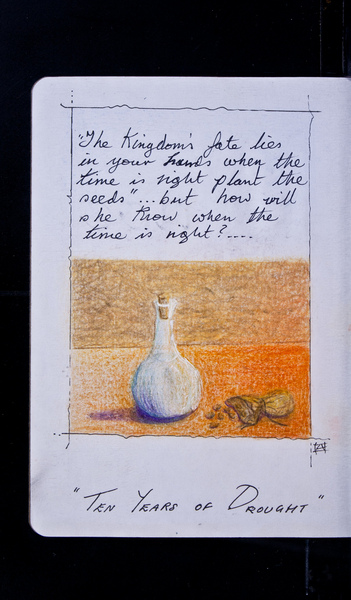 "The Kingdom's fate lies
in your hands when the
time is right plant the
seeds"...but how will
she know when the
time is right?....
"TEN YEARS OF DROUGHT"